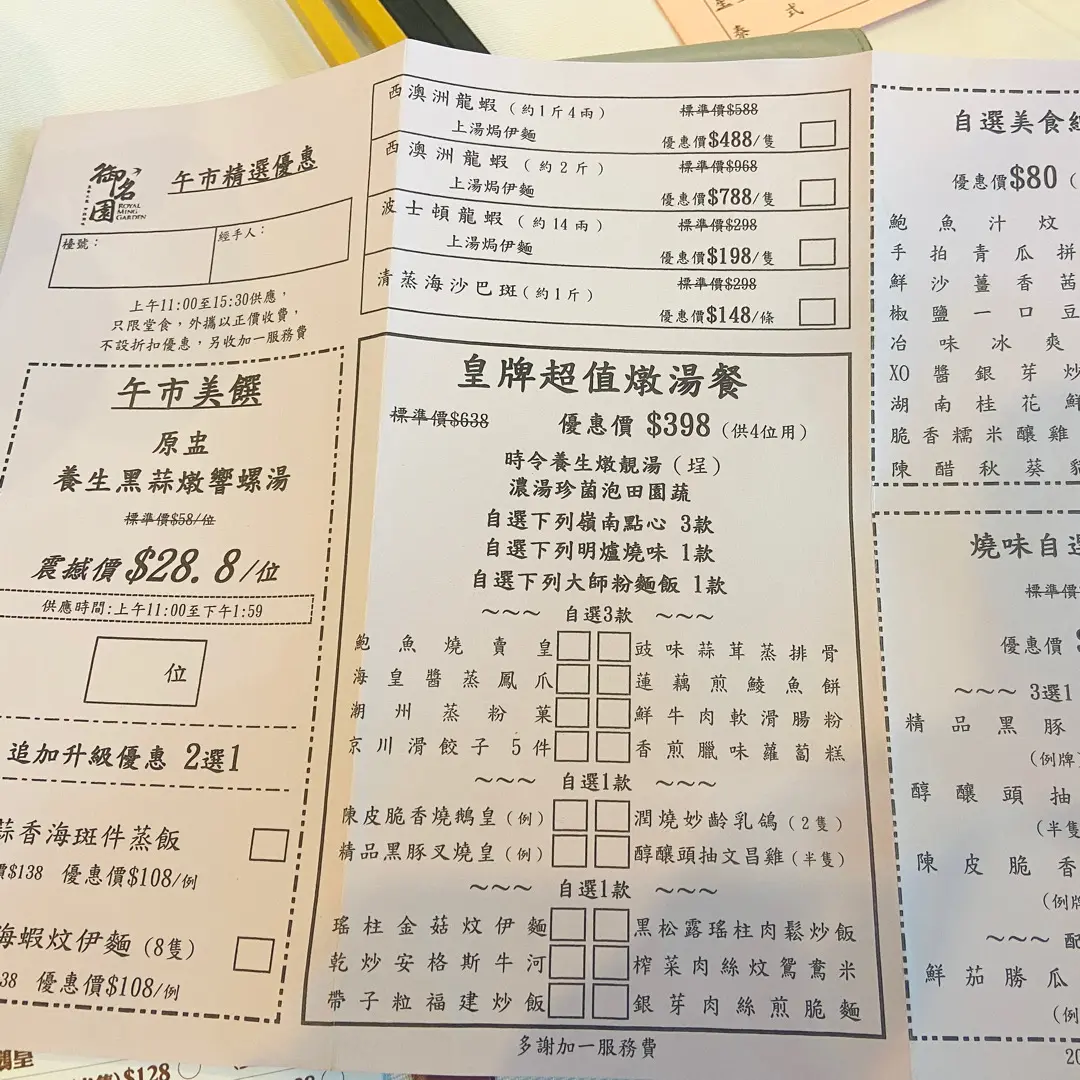 御名園
ROYAL
MING
GARDEN
午市精選優惠
檯號：
經手人：
上午11:00至15:30供應，
只限堂食，外攜以正價收費，
不設折扣優惠，另收加一服務費
午市美饌
原盅
養生黑蒜燉響螺湯
標準價$58/位
震撼價$28.8/位
供應時間:上午11:00至下午1:59
位
追加升級優惠 2選1
蒜香海斑件蒸飯
價$138 優惠價$108/例
海蝦炆伊麵(8隻)
38 優惠價$108/例
西澳洲龍蝦(約1斤4兩) 標準價$588
上湯焗伊麵 優惠價$488/隻
西澳洲龍蝦(約2斤) 標準價$968
上湯焗伊麵 優惠價$788/隻
波士頓龍蝦(約14兩) 標準價$298
上湯焗伊麵 優惠價$198/隻
清蒸海沙巴斑(約1斤) 標準價$298
優惠價$148/條
皇牌超值燉湯餐
標準價$638 優惠價 $398(供4位用)
時令養生燉靚湯(埕)
濃湯珍菌泡田園蔬
自選下列嶺南點心 3款
自選下列明爐燒味 1款
自選下列大師粉麵飯 1款
~~~ 自選3款 ~~~
鮑魚燒賣皇 豉味蒜茸蒸排骨
海皇醬蒸鳳爪 蓮藕煎鯪魚餅
潮州蒸粉菓 鮮牛肉軟滑腸粉
京川滑餃子5件 香煎臘味蘿蔔糕
~~~ 自選1款 ~~~
陳皮脆香燒鵝皇(例) 潤燒妙齡乳鴿(2隻)
精品黑豚叉燒皇(例) 醇釀頭抽文昌雞(半隻)
~~~ 自選1款 ~~~
瑤柱金菇炆伊麵 黑松露瑤柱肉鬆炒飯
乾炒安格斯牛河 榨菜肉絲炆鴛鴦米
帶子粒福建炒飯 銀芽肉絲煎脆麵
多謝加一服務費
自選美食
優惠價$80(
鮑魚汁炆
手拍青瓜拼
鮮沙薑香茜
椒鹽一口豆
冶味冰爽
XO醬銀芽炒
湖南桂花鮮
脆香糯米釀雞
陳醋秋葵
燒味自選
標準價
優惠價
~~~ 3選1
精品黑豚
(例牌)
醇釀頭抽
(半隻
陳皮脆香
(例牌
~~~ 配
鮮茄勝瓜
(例
20
式
$128